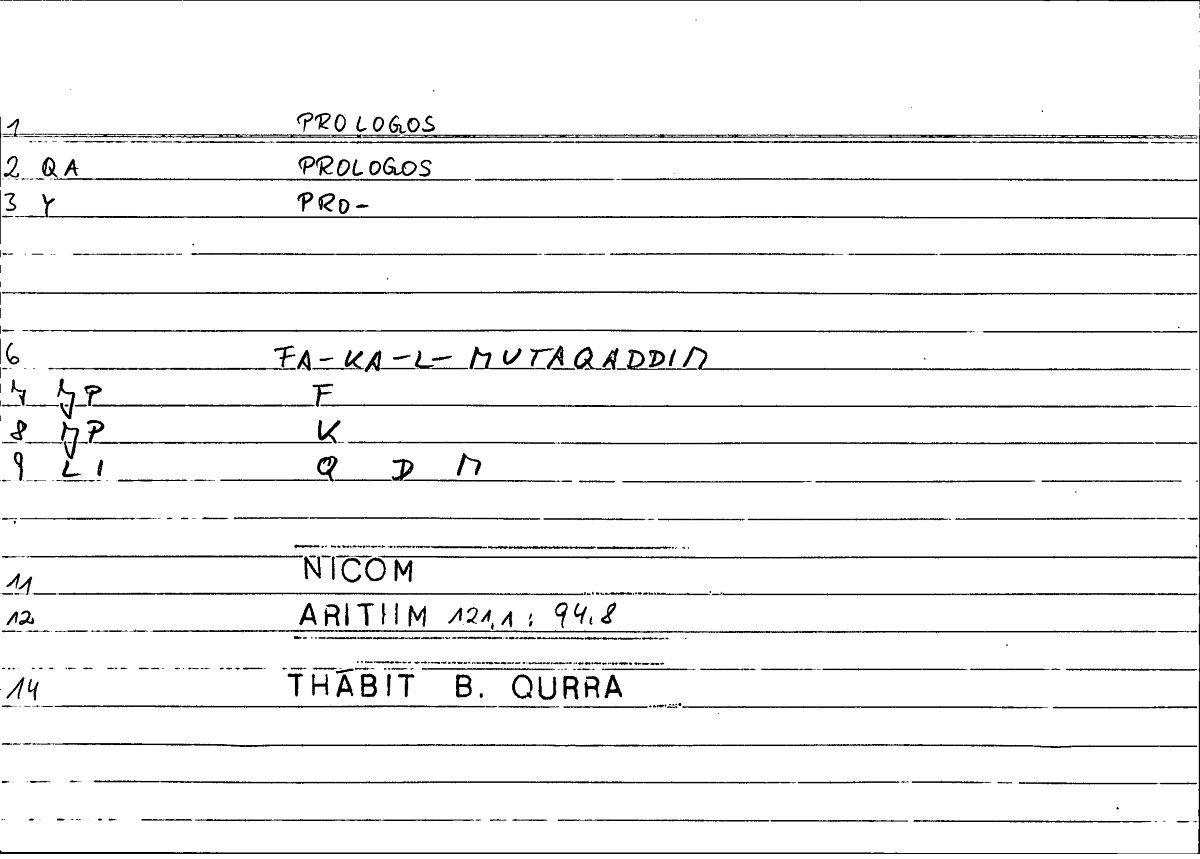 1 PROLOGOS
2 QA PROLOGOS
3 Y PRO-
6 FA-KA-L-MUTAQADDIM
7 MP F
8 MP K
9 LI Q D M
11 NICOM
12 ARITHM 121,1 : 94.8
14 THĀBIT B. QURRA